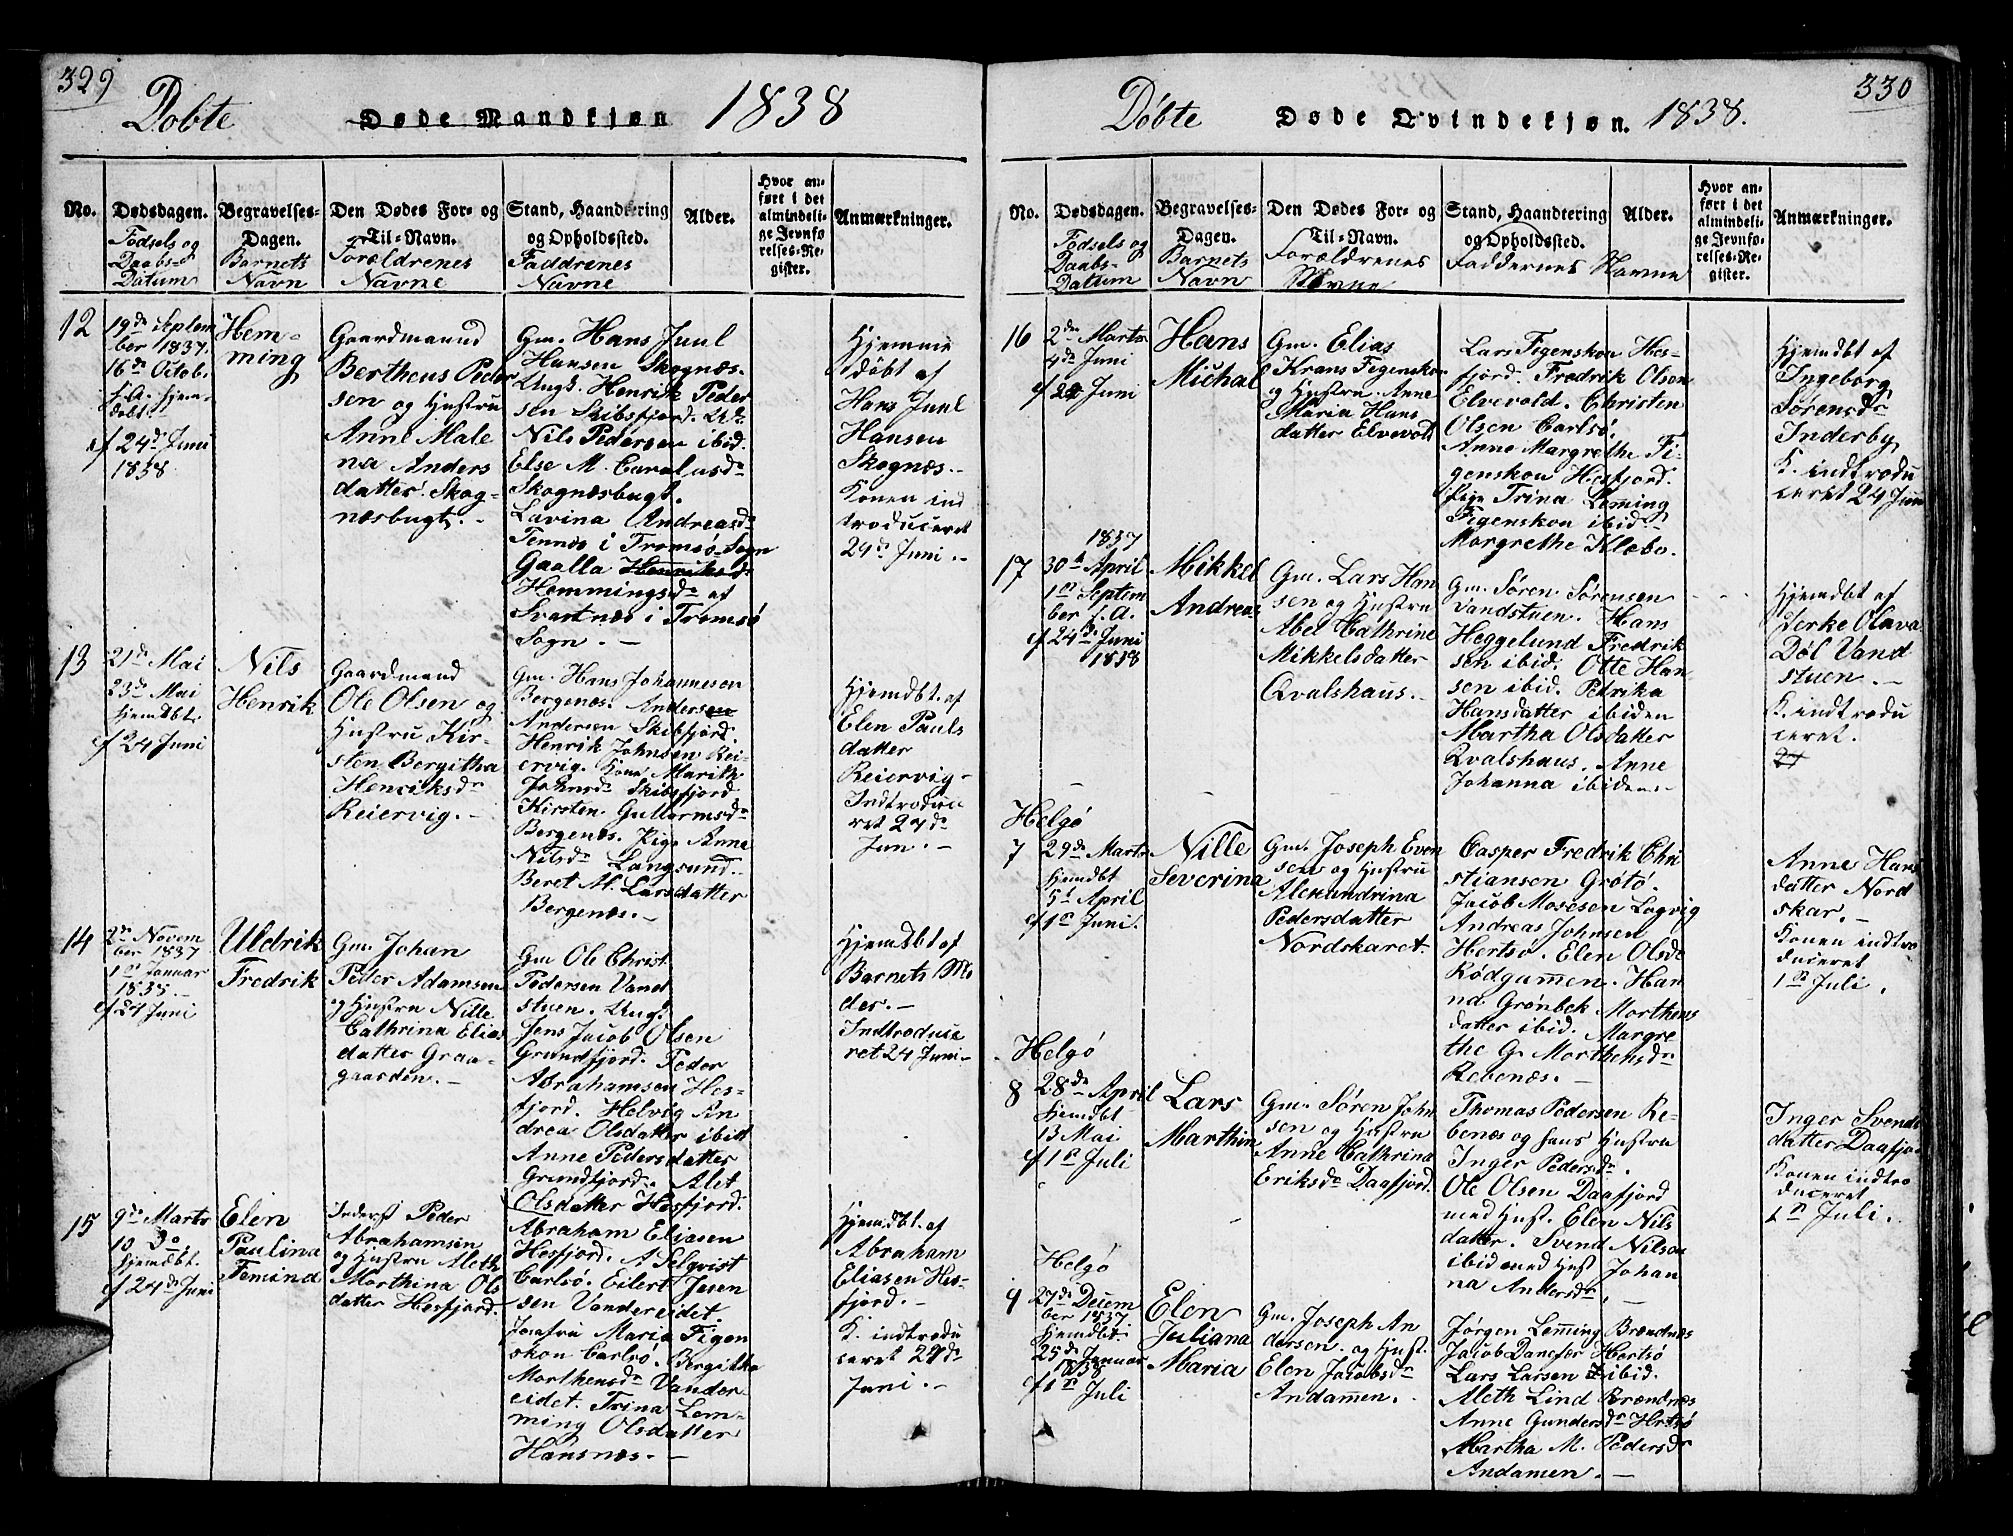 329
Døbte Døde Mandkjøn 1838
No. Dødsdagen. Begravelses-Dagen. Den Dødes For- og Til-Navn. Stand, Haandtering og Opholdssted. Alder. Hvor anført i det almindelige Jevnførelses-Register. Anmærkninger.
Fødsels og Daabs-Datum
Barnets Navn
Forældrenes Navne
Faddrenes Navne
12
19de Septem
ber 1837.
16de Octob.
s. A. hjem
døbt
cf 24de Juni
1838
Hem-
ming
Gaardmand
Bertheus Peder
sen og Hustru
Anne Male
na Anders
datter Skog-
næsbugt. -
Gm. Hans Juul
Hansen Skognæs.
Ungk. Henrik Peder
sen Skibsfjord.
Nils Pedersen ibid.
Else M. Carolusdr
Skognæsbugt.
Lavina Andreasdr
Tennes i Tromsø Sogn
Gaalla Henriksdr
Hemmingsdr af
Svartnæs i Tromsø
Sogn. -
Hjemme
døbt af
Hans Juul
Hansen
Skognæs.
Konen ind
troduceret
24de Juni. -
13
21de Mai
23de Mai
hjemdbt.
cf 24 Juni
Nils
Henrik
Gaardmand
Ole Olsen og
Hustru Kir-
sten Bergitha
Henriksdr
Reiervig. -
Gm. Hans Johannesen
Bergenæs. Andersen
Andersen Skibsfjord
Henrik Johnsen Rei-
ervig. Kone Marith
Johnsdr Skibsfjord
Kirsten Gullormsdr
Bergenæs. Pige Anne
Nilsdr Langsund.
Beret M. Larsdatter
Bergenæs. -
Hjemdbt. af
Elen Pauls
datter
Reiervig -
Indtroduce
ret 24de
Jun. -
14
2den Novem
ber 1837
1ste Januar
1838. -
cf 24 Juni
Uldrik
Fredrik
Gm. Johan
Peder Adamsen
og Hustru Nille
Cathrina Elias
datter Graa-
gaarden. -
Gm Ole Christ
Pedersen Vand
stuen. Ung.
Jens Jacob Olsen
Grundfjord. Peder
Abrahamsen Hes-
fjord. Helvig An
drea Olsdatter ibid
Anne Pedersdatter
Grundfjord. Alet
Olsdatter Hesfjord.
Hjemdbt af
Barnets Mo
der. -
Indtroduce
ret 24 Juni -
15
9de Marts
10 Do.
hjemdbt.
cf 24de Juni
Elen
Paulina
Femind
Inderst Peder
Abrahamsen
og Hustru Aleth
Marthina Ols
datter Hesfjord.
Abraham Eliasen
Hesfjord. A Selqvist
Carlsø. Eilert Jesen
sen Vandereidet.
Jomfru Maria Figen
skou Carlsø. Bergitha
Morthensdr Vander
eidet. Trina Lem-
ming Olsdatter
Hansnæs. -
Hjemdbt. af
Abraham
Eliasen Hes-
fjord. -
K. indtrodu
ceret 24de
Juni. -
330
Døbte Døde Qvindekjøn. 1838.
No. Dødsdagen. Begravelses-Dagen. Den Dødes For- og Til-Navn. Stand, Haandtering og Opholdssted. Alder. Hvor anført i det almindelige Jevnførelses-Register. Anmærkninger.
Fødsels og Daabs-Datum
Barnets Navn
Forældrenes Navne
Faddernes Navne
16
2den Marts
4de Juni
cf 24 Juni
Hans
Michal
Gm. Elias
Krans Figenskou
og Hustru Anne
Maria Hans
datter Elvevold
Lars Figenskou Hes-
fjord. Fredrik Olsen
Elvevold. Christen
Olsen Carlsø.
Anne Margrethe Fi-
genskou Hesfjord.
Pige Trina Leming
Figenskou ibid
Margrethe Klæbo.
Hjemdbt af
Ingeborg
Sørensdr
Inderby
K. indtrodu
ceret 24 Juni
17
1837
30te April
1ste Septem
ber s. A.
cf 24de Juni
1838
Mikkel
Andreas
Gm. Lars Han
sen og Hustru
Abel Cathrine
Mikkelsdatter
Qvalshaus. -
Gm. Søren Sørensen
Vandstuen. Hans
Heggelund Fredrik
sen ibid. Otte Han
sen ibid. Pedrika
Hansdatter ibiden
Martha Olsdatter
Qvalshaus. Anne
Johanna ibidem -
Hjemdbt af
Jerke Olava
Døl Vand
stuen. -
K. indtrodu
ceret.
24
Helgø
7
29de Marts
hjemdbt
5te April
cf 1ste Juni.
Nille
Severina
Gm. Joseph Even
sen og Hustru
Alexandrina
Pedersdatter
Nordskaret
Casper Fredrik Chri
stiansen Grøtø.
Jacob Mosesen Løgvig
Andreas Johnsen
Hertsø. Elen Olsdr
Rødgammen. Han
na Grønbek Morthens
datter ibid. Margre
the G. Morthensdr
Rebenæs. -
Anne Hans
datter Nord
skar. -
Konen indtro
duceret
1ste Juli.
Helgø
8
28de April
hjemdbt
13 Mai
cf 1ste Juli
Lars
Marthin
Gm. Søren John
sen og Hustru
Anne Cathrina
Eriksdr Daafjord.
Thomas Pedersen Re-
benæs og hans Hustru
Inger Pedersdr.
Ole Olsen Daafjord
med Hust. Elen Nils
datter. Svend Nilsen
ibid med Hust Johan
na Andersdr. -
Inger Svends
datter Daafjor
Konen indtro
duceret
1ste Juli.
Helgø
9
27de Decem
ber 1837
hjemdbt.
25de Januar
1838
cf 1ste Juli
Elen
Juliana
Maria
Gm. Joseph An
dersen og Hust.
Elen Jacobsdr
Andamen.
Jørgen Leming Brændnæs
Jacob Danefær Hertsø
Lars Larsen ibid.
Aleth Lind Brændnæs
Anne Gundersdr Hertsø
Martha M. Pedersdr
Andamen. -